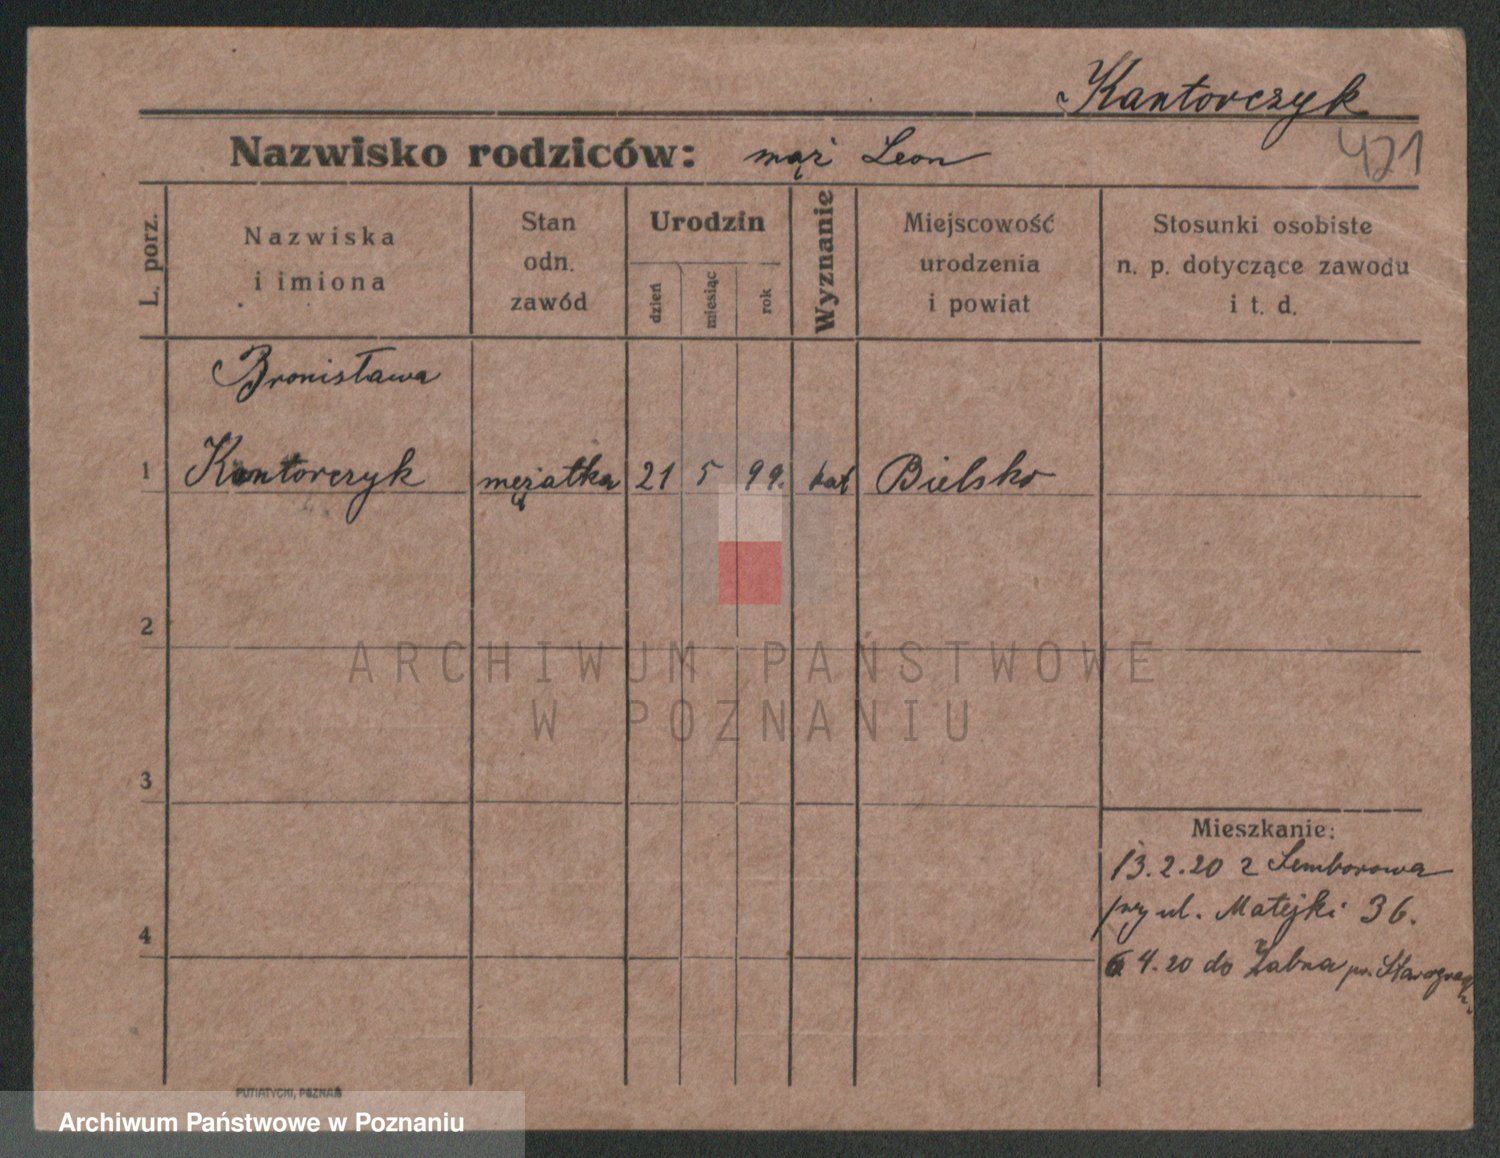 Kantorczyk
421
Nazwisko rodziców: mąż Leon
L. porz.
Nazwiska
i imiona
Stan
odn.
zawód
Urodzin
dzień
miesiąc
rok
Wyznanie
Miejscowość
urodzenia
i powiat
Stosunki osobiste
n. p. dotyczące zawodu
i t. d.
Bronisława
1 Kantorczyk mężatka 21 5 99. kat Bielsko
2
ARCHIWUM PAŃSTWOWE
W POZNANIU
3
Mieszkanie:
13.2.20 z Lemborowa
przy ul. Matejki 36.
4
6 4.20 do Żabna pw. Starogradz.
PUTIATYCKI, POZNAŃ
Archiwum Państwowe w Poznaniu